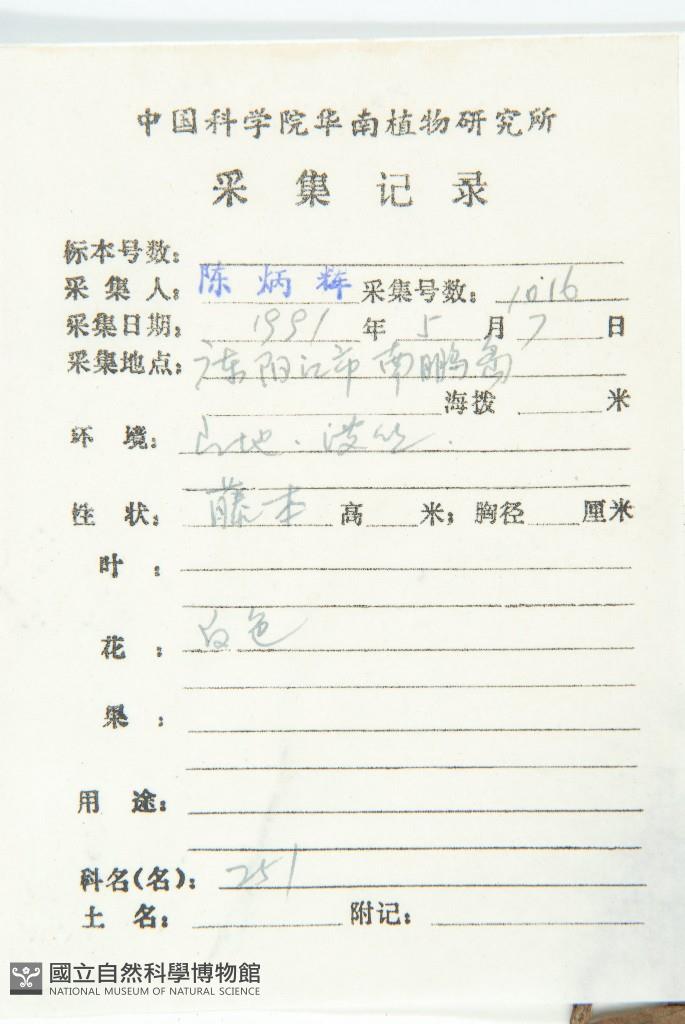 中国科学院华南植物研究所
采 集 记 录
标本号数:
采 集 人: 陈 炳 辉 采集号数: 1016
采集日期: 1991 年 5 月 7 日
采集地点: 广东阳江市南鹏岛
海拨 米
环 境: 山地.
性 状: 藤本 高 米; 胸径 厘米
叶 :
花 : 白色
果 :
用 途:
科名(名): 251
土 名: 附记:
國立自然科學博物館
NATIONAL MUSEUM OF NATURAL SCIENCE